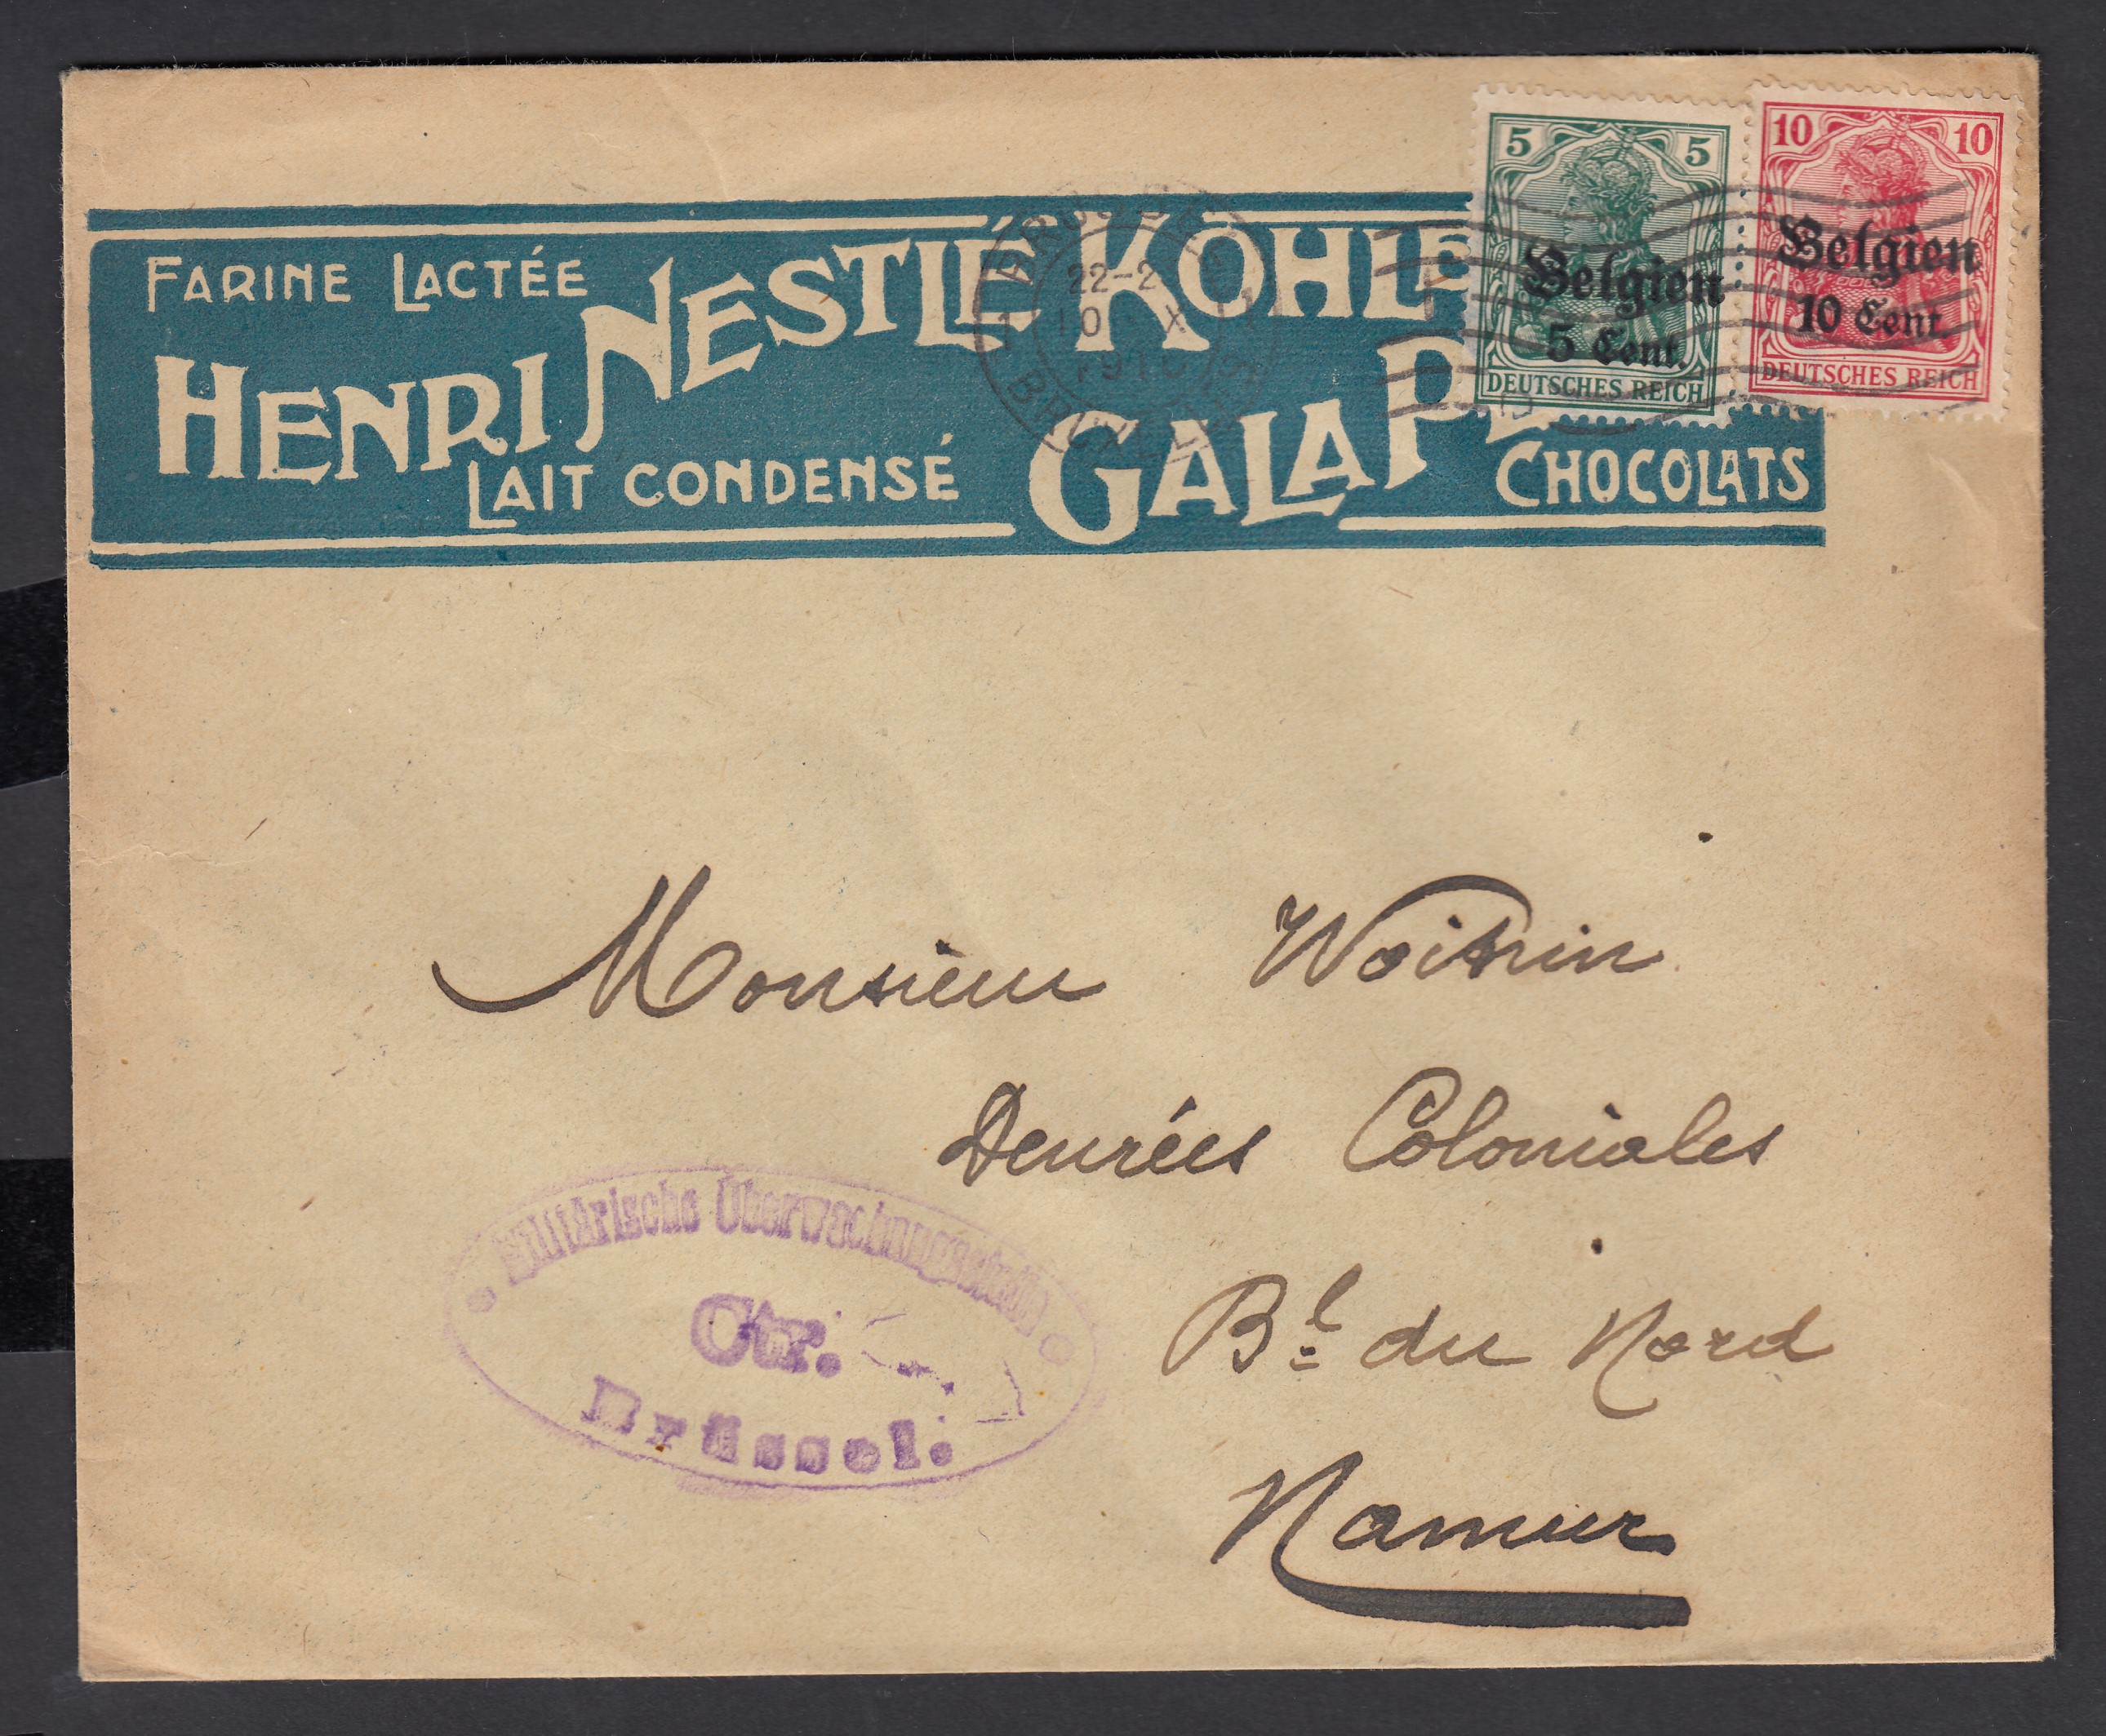 FARINE LACTÉE
HENRI NESTLÉ
LAIT CONDENSÉ
KOHLE
GALA PE
CHOCOLATS
5 5
Belgien
5 Cent.
DEUTSCHES REICH
10 10
Belgien
10 Cent.
DEUTSCHES REICH
22-2
10 X
Monsieur Woitrin
Denrées Coloniales
Bd du Nord
Namur
Militärische Überwachungsstelle
Ctr.
Brüssel.